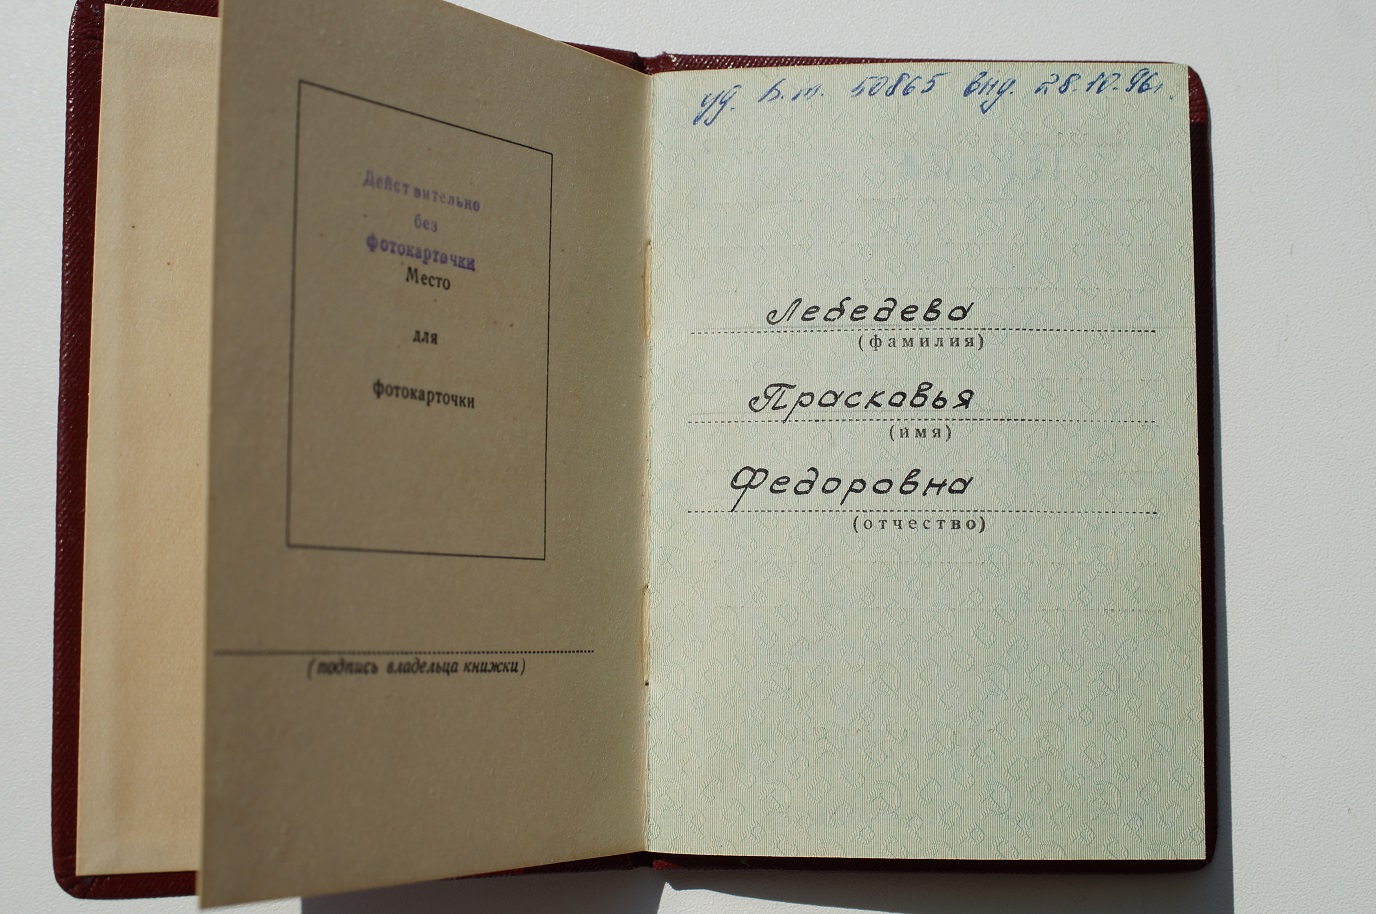 Действительно
без
фотокарточки
Место
для
фотокарточки
(подпись владельца книжки)
уд. В.т. 50865 выд. 28.10.96г.
Лебедева
(фамилия)
Прасковья
(имя)
Федоровна
(отчество)